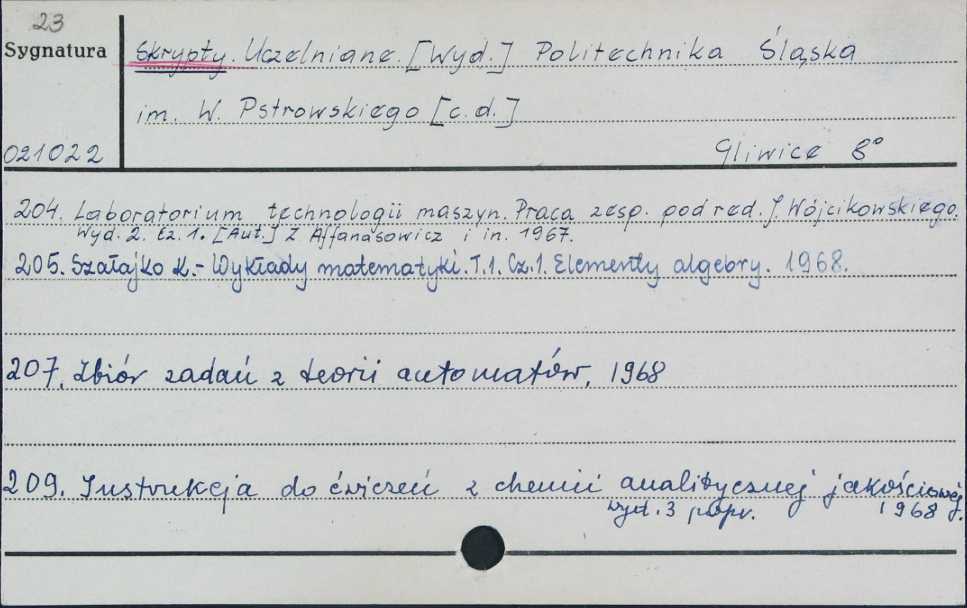 23
Sygnatura
Skrypty Uczelniane. [Wyd.] Politechnika Śląska
im. W. Pstrowskiego [c.d.]
021022
Gliwice 8°
204. Laboratorium technologii maszyn. Praca zesp. pod red. J. Wójcikowskiego.
Wyd. 2. Cz. 1. [Aut.] Z Affanasowicz i in. 1967.
205. Szałajko K.- Wykłady matematyki. T.1. Cz.1. Elementy algebry. 1968.
207. Zbiór zadań z teorii automatów, 1968
209. Instrukcja do ćwiczeń z chemii analitycznej jakościowej
wyd. 3 popr. 1968.